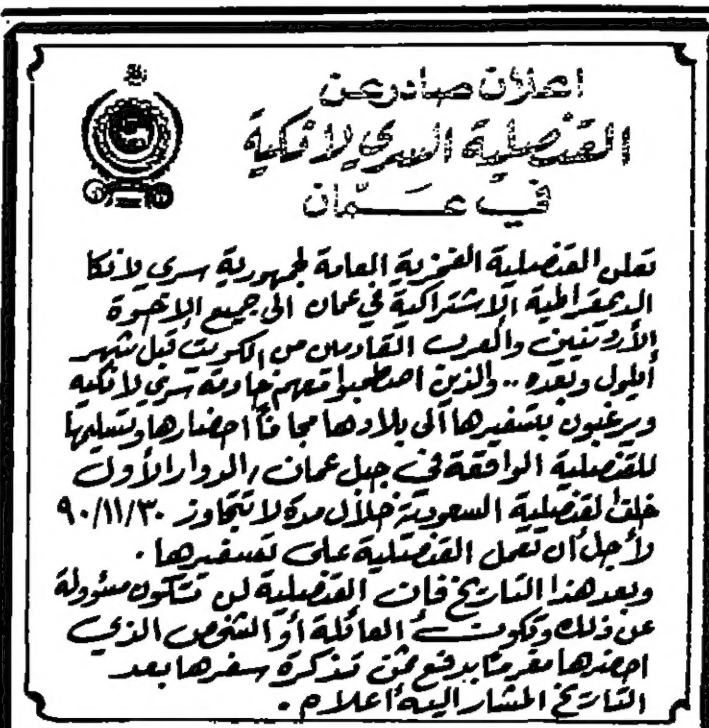 اعلان صادر عن
القنصلية السري لانكية
في عمّان
تعلن القنصلية الفخرية العامة لجمهورية سري لانكا
الديمقراطية الاشتراكية في عمان الى جميع الاخوة
الأردنيين والعرب القادمين من الكويت قبل شهر
أيلول وبعده .. والذين اصطحبوا معهم خادمة سري لانكيه
ويرغبون بتسفيرها الى بلادها مجاناً احضارها وتسليمها
للقنصلية الواقعة في جبل عمان / الدوار الأول
خلف القنصلية السعودية خلال مدة لا تتجاوز ٩٠/١١/٣٠
لأجل أن تعمل القنصلية على تسفيرها .
وبعد هذا التاريخ فان القنصلية لن تكون مسئولة
عن ذلك وتكون العائلة أو الشخص الذي
احضرها مغرماً بدفع ثمن تذكرة سفرها بعد
التاريخ المشار اليه أعلاه .